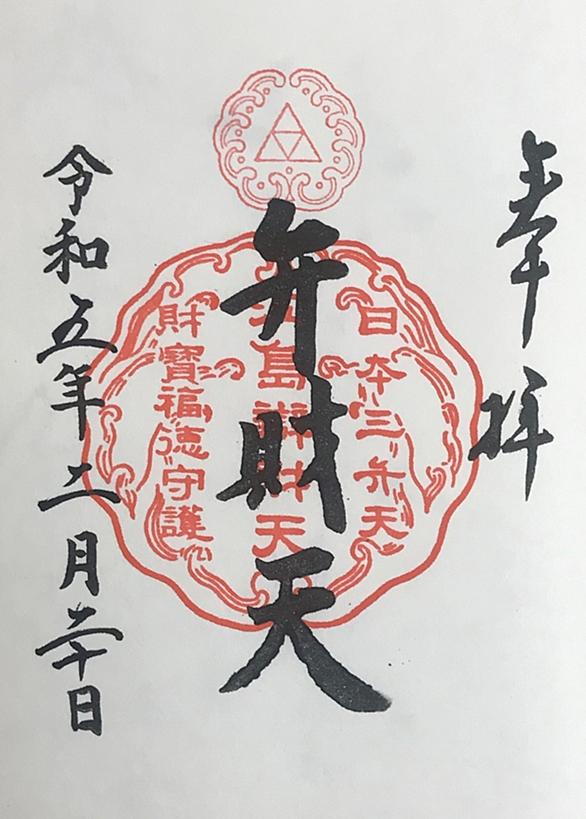 奉拝
日本三弁天
弁財天
江島辨財天
財寶福徳守護
令和五年二月二十日